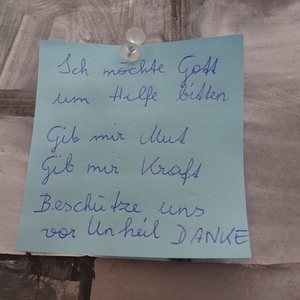 Ich möchte Gott
um Hilfe bitten
Gib mir Mut
Gib mir Kraft
Beschütze uns
vor Unheil DANKE